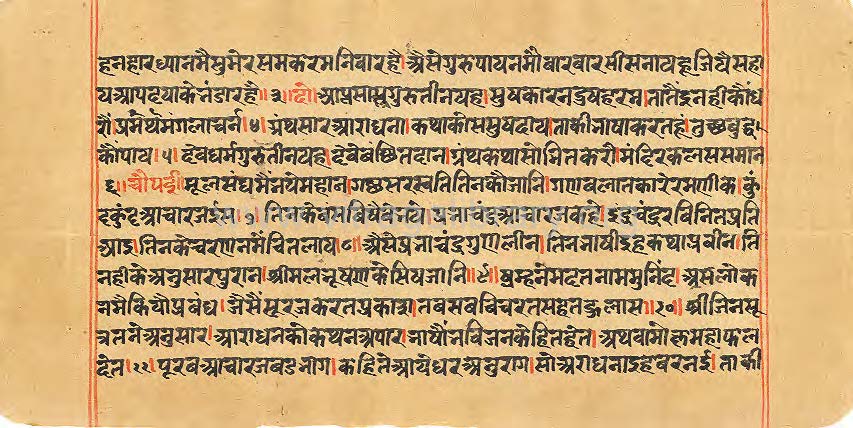 हनहारध्यानमैसुमेरसमकरमनिवारहै।औसेगुरुपायनमौंवारवारसीसनायहूजियैसहा
यआपदयाकेभंडारहै॥३॥दो॥आप्रसासुगुरुतीनयह।सुषकारनदुषहरन।तातैइनहीकौंध
रौं।प्रमथमंगलाचर्न।४।ग्रंथसारआराधना।कथाकोससुषदाय।ताकीभाषाकरतहूं।तुछबुद्ध
कौंपाय।५।देवधर्मगुरुतीनयह।देवेवंछितदान।ग्रंथकथासोभितकरौ।मंदिरकलससमान
६।चौपई।मूलसंघमैंभयेमहान।गछसरस्वतितिनकौजानि।गणबलातकारेरमणीक।कुं
दकुंदआचारजईस।७।तिनकेवंसविषैवेभये।प्रभाचंद्रआचारजकहे।इंद्रचंद्ररविनितप्रति
आइ।तिनकेचरणनमेंचितलाय।८।औसेप्रभाचंद्रगुणलीन।तिनभाषीइहकथाप्रवीन।ति
नहीकेअनुसारपुरान।श्रीमलभूषणकेसिषजानि॥९।ब्रम्हनेमदतनाममुनिंद।अस्लोक
नमैकियौप्रबंध।जैसैंसूरजकरतप्रकास।तबसबविचरतसहतहुलास॥१०॥श्रीजिनसू
त्रतनेअनुसार।आराधनकौकथनअपार।भाषौंभविजनकेहितहेत।अथवामोक्षमहाफल
देत।११।पूरवआचारजबडभाग।कहितेआयेधरअनुराग।सोअराधनाइहवरनई।ताकी